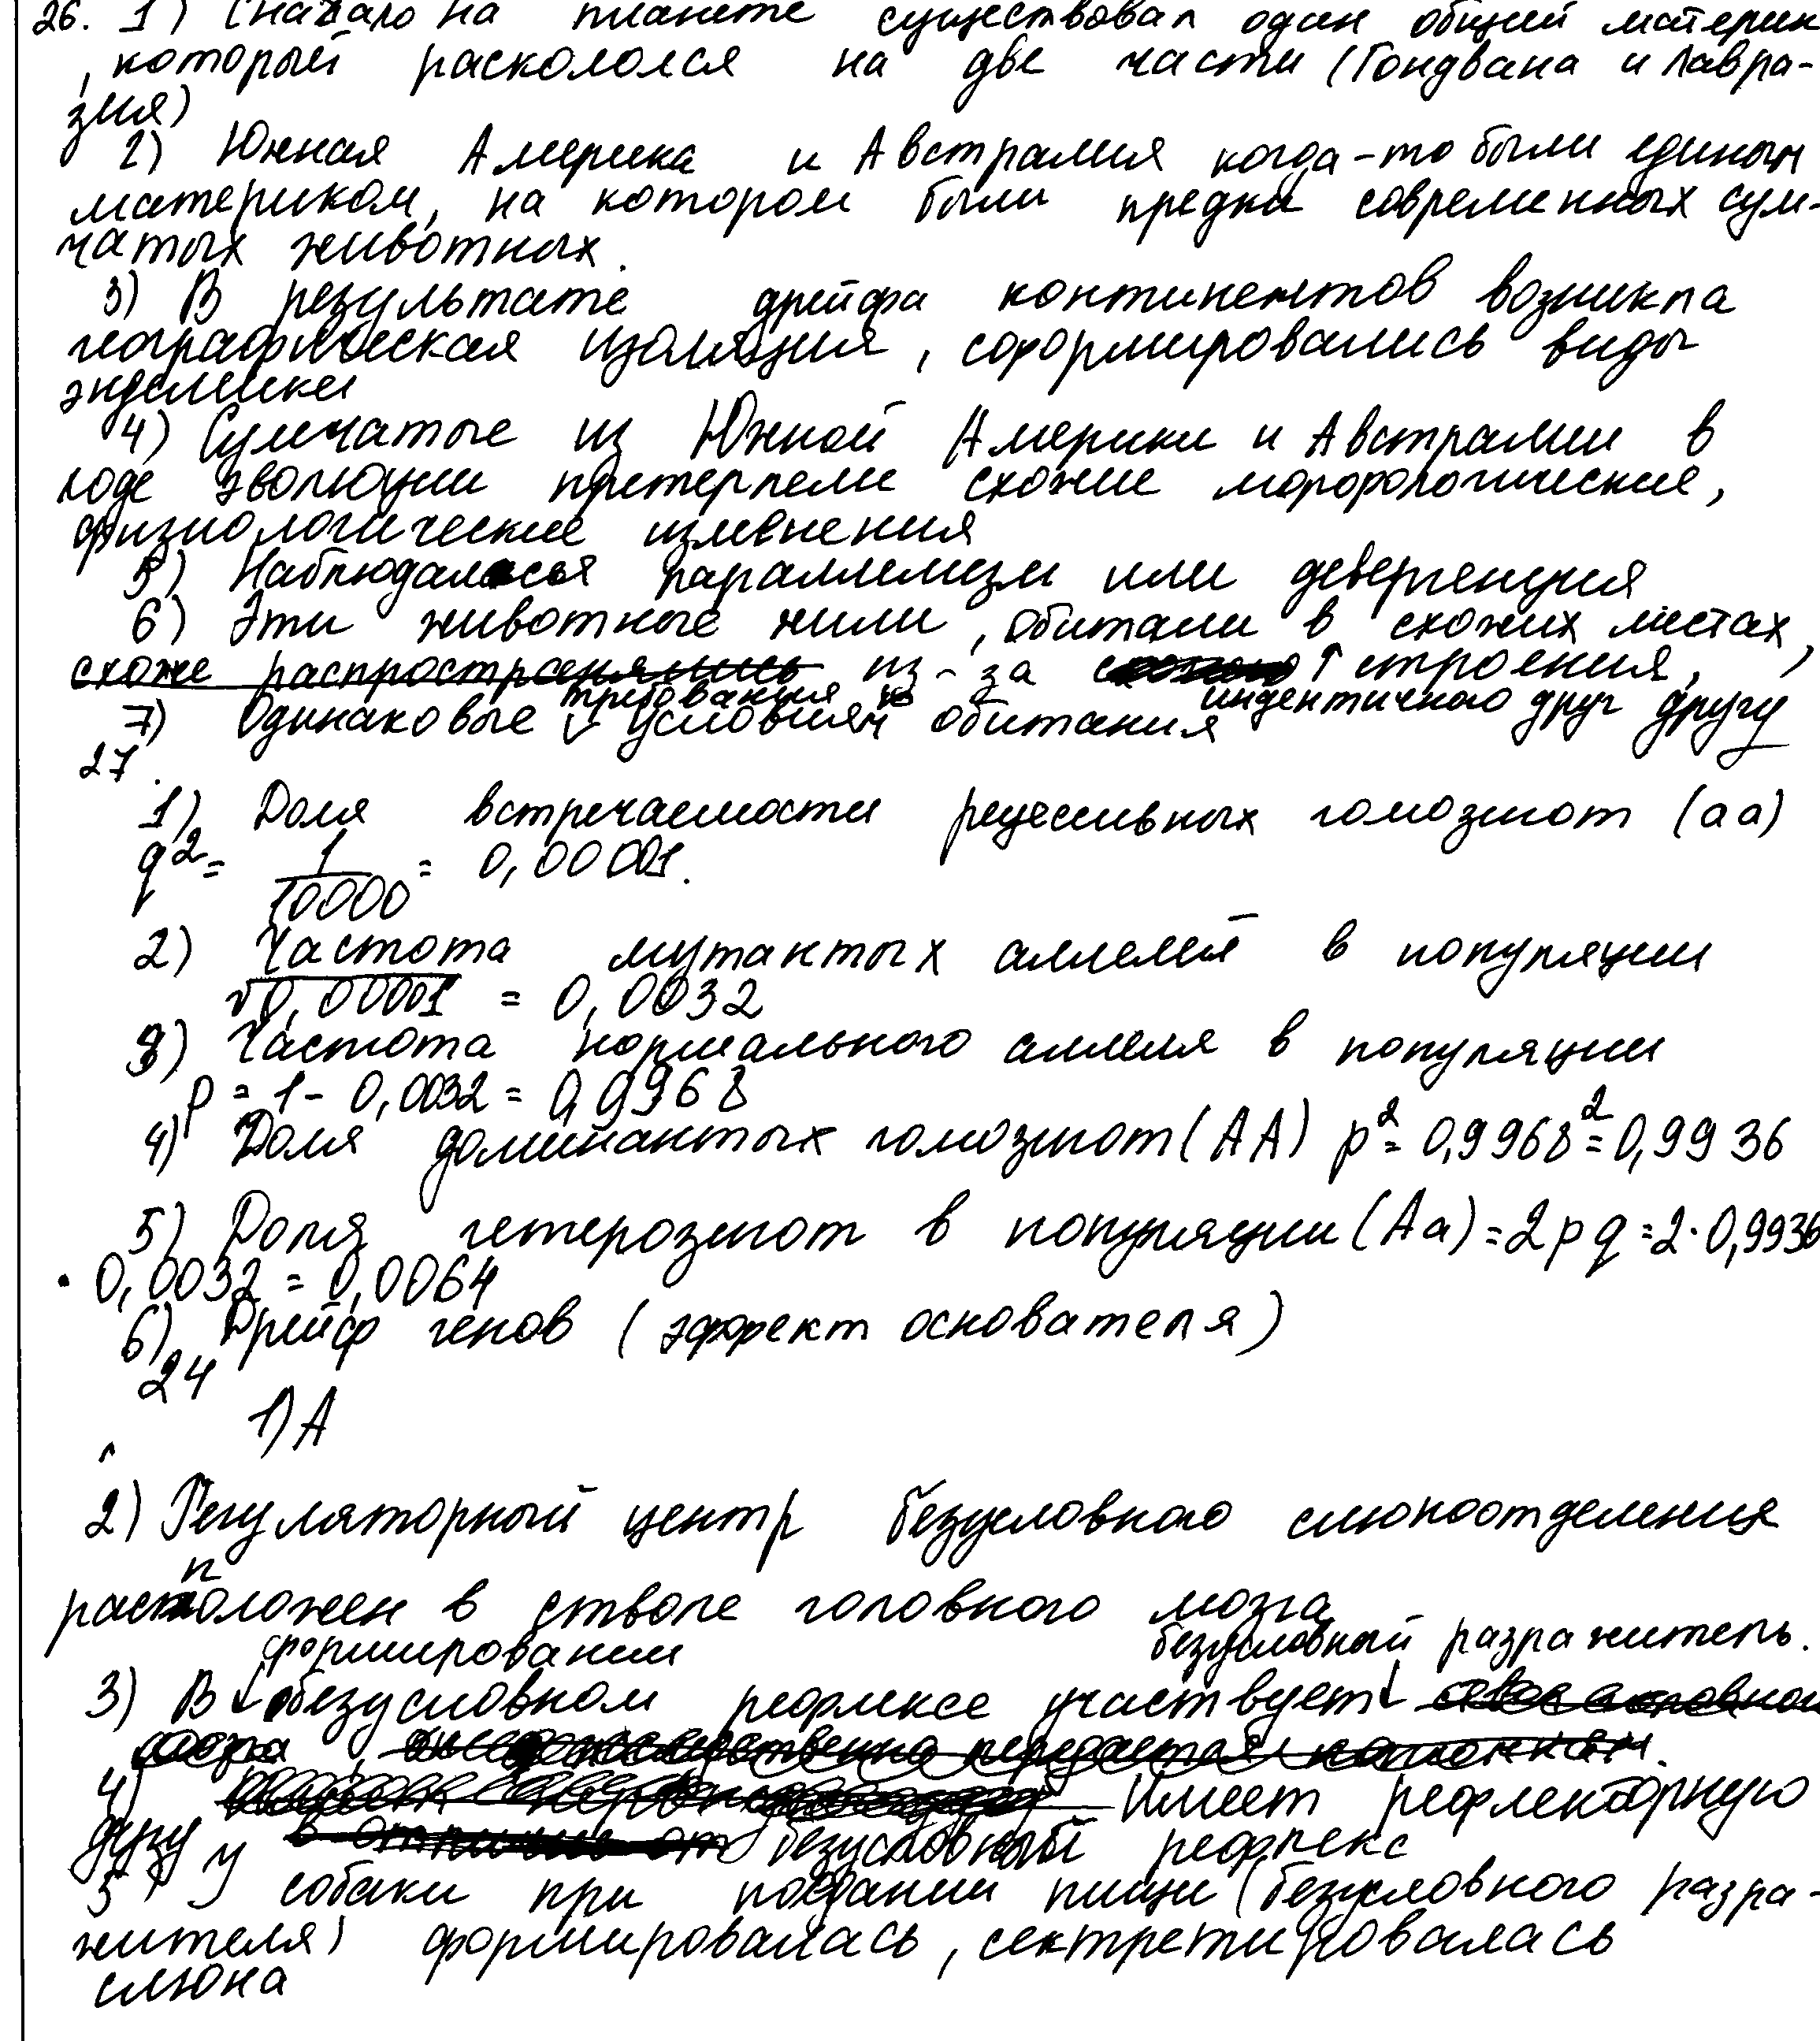 26. 1) Сначало на планете существовал один общий материк
, который раскололся на две части (Гондвана и Лавра-
зия)
2) Южная Америка и Австралия когда-то были единым
материком, на котором были предки современных сум-
чатых животных.
3) В результате дрейфа континентов возникла
географическая изоляция, сформировались виды
эндемики
4) Сумчатые из Южной Америки и Австралии в
ходе эволюции претерпели схожие морфологические,
физиологические изменения
5) Наблюдалсья параллелизм или девергенция
6) Эти животные жили, обитали в схожих местах,
схоже распространялись из-за строения,
индентичного друг другу
7) Одинаковые требования к условиям обитания
27.
1) Доля встречаемости рецессивных гомозигот (аа)
q² = 1/10000 = 0,00001.
2) Частота мутактых аллелей в популяции
√0,00001 = 0,0032
3) Частота нормального аллеля в популяции
p = 1 - 0,0032 = 0,9968
4) Доля доминактых гомозигот (АА) p² = 0,9968² = 0,9936
5) Доля гетерозигот в популяции (Аа) = 2pq = 2·0,9936
· 0,0032 = 0,0064
6) Дрейф генов (эффект основателя)
24
1) А
2) Регуляторный центр безусловного слюноотделения
расположен в стволе головного мозга
3) В формировании безусловном рефлексе участвует безусловный разражитель.
4) Имеет рефлекторную
дугу безусловный рефлекс
5 У собаки при поедании пищи (безусловного разра-
жителя) формировалась, сектретировалась
слюна